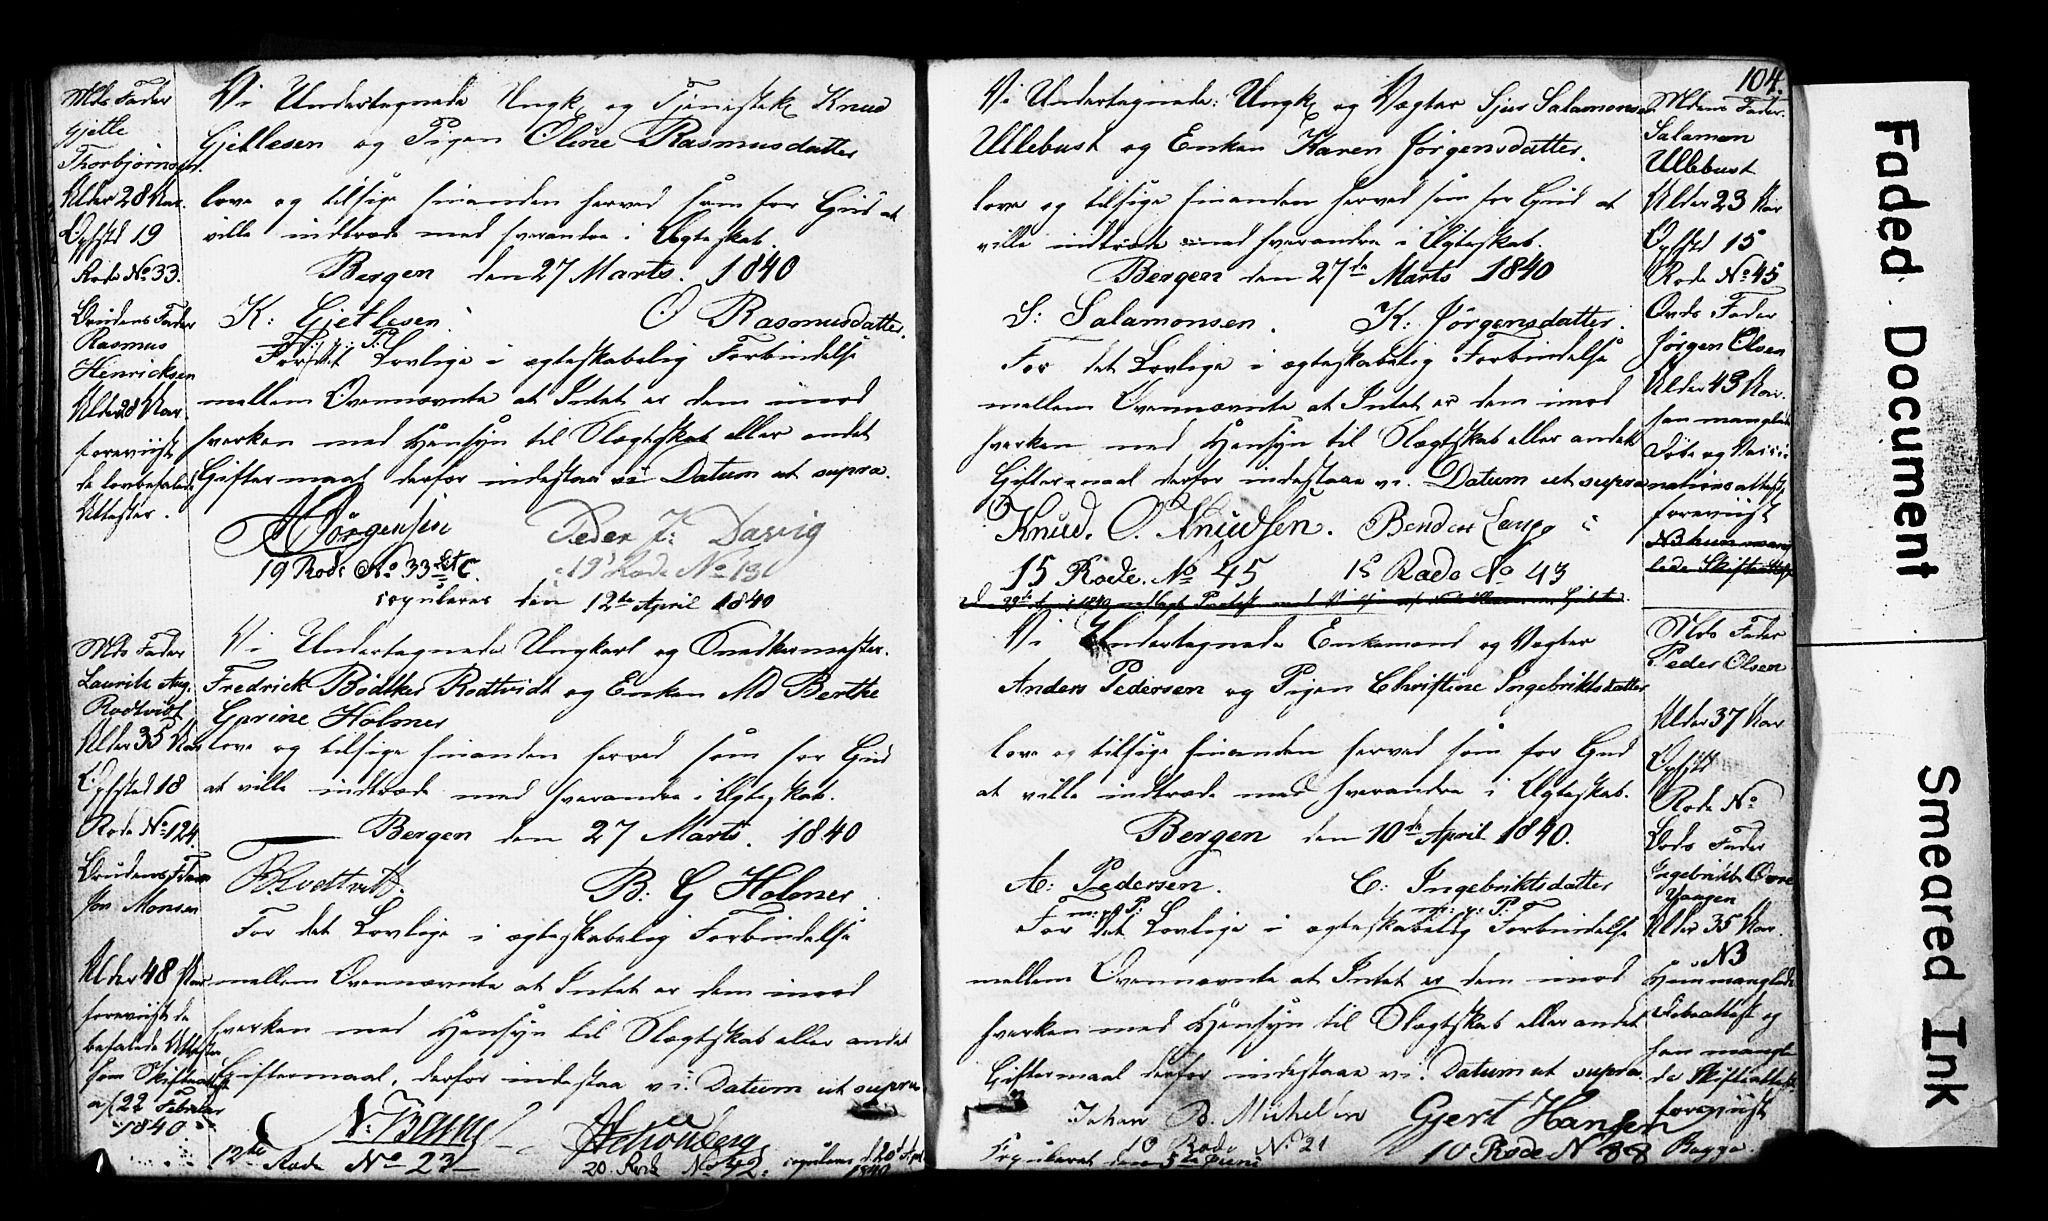 Mds Fader
Gjetle
Thorbjörnsen.
Alder 28 Aar.
Opfstd 19
Rode No 33.
Brudens Fader
Rasmus
Henricksen
Alder 28 Aar.
foreviist
de lovbefalede
Attester.
Vi Undertegnede Ungk og Tjenestek Knud
Gjetlesen og Pigen Oline Rasmusdatter
love og tilsige hinanden herved som for Gud at
ville indtræde med hverandre i Ægteskab.
Bergen den 27 Marts. 1840
K: Gjetlesen O Rasmusdatter.
For det Lovlige i ægteskabelig Forbindelse
mellem Ovennævnte at Intet er dem imod
hverken med Hensyn til Slægtskab eller andet
Giftermaal derfor indestaae vi Datum ut supra.
Jörgensen Peder J: Darvig
19 Rode No 33 Lit C. 19 Rode No 13
copuleres den 12te April 1840
Mds Fader
Lauritz Aug.
Rodtvidt
Alder 35 Aar
Opfsted 18
Rode No 124.
Brudens Fader
Jon Monsen
Alder 48 Aar
foreviist de
befalede Attester
som Skifteattest
af 22 Februar
1840
Vi Undertegnede Ungkarl og Snedkermester.
Fredrick Bödtker Rodtvidt og Enken Md Berthe
Gurine Holmer
love og tilsige hinanden herved som for Gud
at ville indtræde med hverandre i Ægteskab.
Bergen den 27 Marts. 1840
F. Rodtvidt. B: G Holmer.
For det Lovlige i ægteskabelig Forbindelse
mellem Ovennævnte at Intet er dem imod
hverken med Hensyn til Slægtskab eller andet
Giftermaal, derfor indestaae vi. Datum ut supra.
12te Rode No 23 20 Rode
1840
104.
Vi Undertegnede: Ungk og Vægter Sjur Salamonsen
Ullebust og Enken Karen Jørgensdatter.
love og tilsige hinanden herved som for Gud at
ville indtræde med hverandre i Ægteskab.
Bergen den 27de Marts 1840
S: Salamonsen. K: Jørgensdatter.
For det Lovlige i ægteskabelig Forbindelse
mellem Ovennævnte at Intet er dem imod
hverken med Hensyn til Slægtskab eller andet
Giftermaal derfor indestaae vi. Datum ut supra
Knud. O. Knudsen.
15 Rode. No 45 15 Rode No 43
Mdens Fader.
Salamon
Ullebust
Alder 23 Aar
Opfsted 15
Rode No 45
Bruds Fader
Jørgen Olsen
Alder 43 Aar.
han manglede
Döbe og Vacci
nationsattest,
foreviist
NB hun mang
lede Skifteattest
Vi Undertegnede Enkemand og Vægter
Anders Pedersen og Pigen Christine Ingebriktsdatter
love og tilsige hinanden herved som for Gud
at ville indtræde med hverandre i Ægteskab.
Bergen den 10de April 1840.
A: Pedersen. C: Ingebriktsdatter
m: p: P: m: p: P:
For det Lovlige i ægteskabelig Forbindelse
mellem Ovennævnte at Intet er dem imod
hverken med Hensyn til Slægtskab eller andet
Giftermaal derfor indestaae vi. Datum ut supra
Johan B. Michelsen Gjert Hansen
10 Rode No 21 10 Rode No 88
Mds Fader
Peder Olsen
Alder 37 Aar
Opfstd
Rode No
Bruds Fader
Ingebrikt Ovre
Vangen
Alder 35 Aar.
NB
Hun manglede
Döbeattest og
han mangle
de Skifteattest
foreviist
Begge.
Faded Document
Smeared Ink